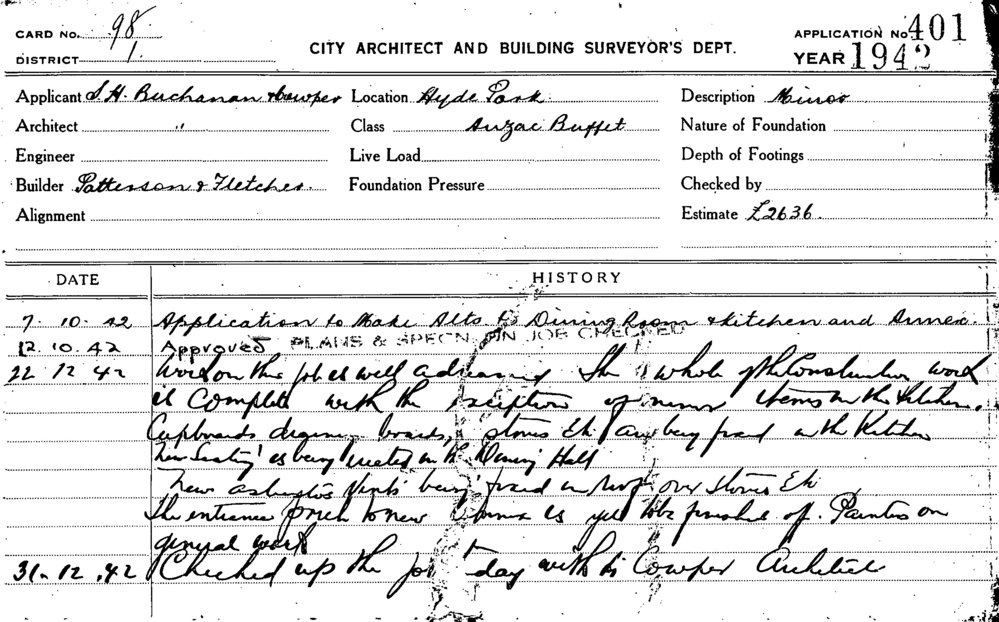 CARD No. 98
DISTRICT 1
CITY ARCHITECT AND BUILDING SURVEYOR'S DEPT.
APPLICATION No 401
YEAR 1942
Applicant S.H. Buchanan & Cowper Location Hyde Park Description Minor
Architect " Class Anzac Buffet Nature of Foundation
Engineer Live Load Depth of Footings
Builder Patterson & Fletcher. Foundation Pressure Checked by
Alignment Estimate £2636.
DATE HISTORY
7. 10. 42 Application to Make Alts to Dining Room & Kitchen and Annex.
12. 10. 42 Approved PLANS & SPECN ON JOB CHECKED
22 12 42 Work on this job is well advanced The whole of the Construction work
is Complete with the exception of minor items in the Kitchen.
Cupboards boards, stoves Etc are being fixed in the Kitchen
New Seating is being erected in the Dining Hall
New asbestos being fixed in roof over stoves Etc
The entrance porch to new is yet to be finished off. Painters on
general work
31. 12. 42 Checked up the job day with Cowper Architect